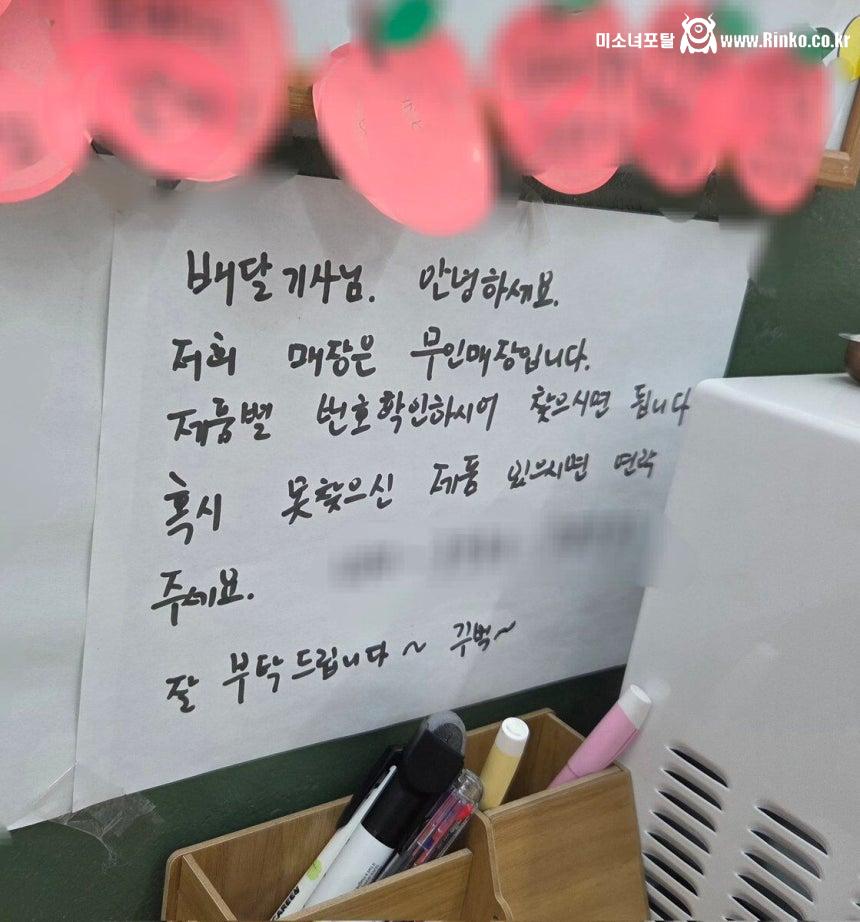 미소녀포탈 www.Rinko.co.kr
배달기사님. 안녕하세요.
저희 매장은 무인매장입니다.
제품별 번호확인하시어 찾으시면 됩니다
혹시 못찾으신 제품 있으시면 연락
주세요.
잘 부탁드립니다~ 꾸벅~